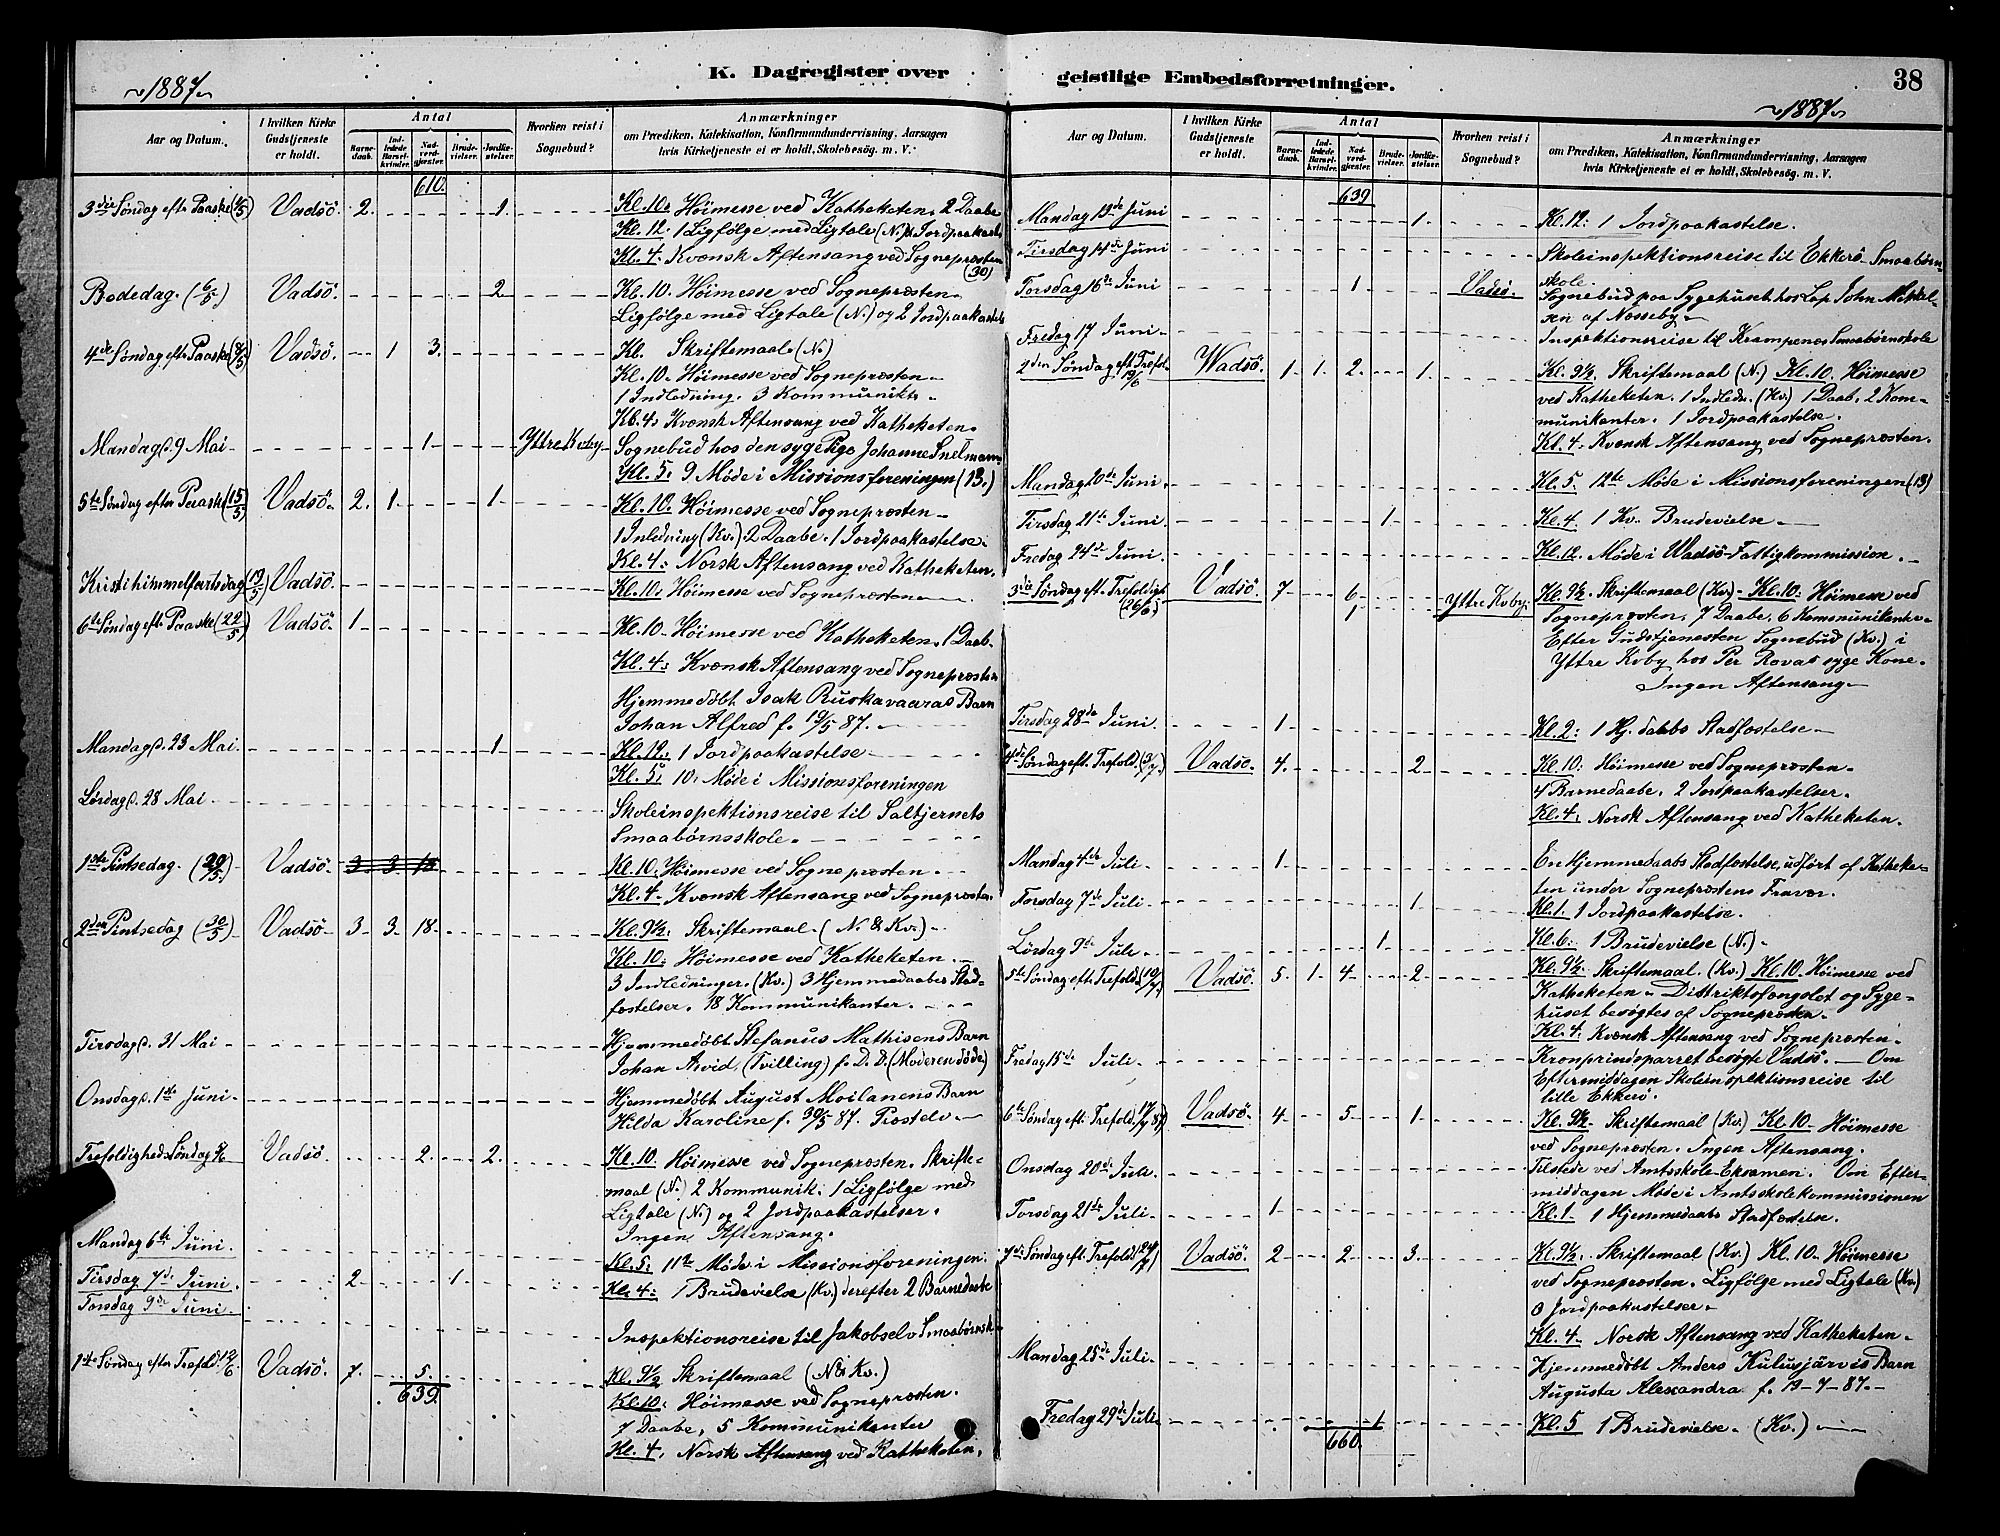 K. Dagregister over
~1887~
Aar og Datum.
I hvilken Kirke Gudstjeneste er holdt.
Antal
Barnedaab.
Indledede Barselkvinder.
Nadverdgjæster.
Brudevielser.
Jordfæstelser.
Hvorhen reist i Sognebud?
Anmærkninger
om Prædiken, Katekisation, Konfirmandundervisning, Aarsagen
hvis Kirketjeneste ei er holdt, Skolebesøg. m. V.
610.
3die Søndag efter Paaske (1/5) Vadsö. 2. 1. Kl. 10. Höimesse ved Katheketen. 2 Daabe
Kl. 12. 1 Ligfölge med Ligtale (N.) & Jordpaakast.
Kl. 4: Kvensk Aftensang ved Sognepræsten (30)
Bededag. (6/5) Vadsö. 2. Kl. 10. Höimesse ved Sognepræsten.
Ligfölge med Ligtale (N.) og 2 Jordpaakastels
4de Søndag efter Paaske (8/5) Vadsö. 1 3. Kl. Skriftemaal (N.)
Kl. 10. Höimesse ved Sognepræsten.
1 Indledning. 3 Kommunikts.
Kl. 4: Kvensk Aftensang ved Katheketen.
Mandag d. 9 Mai 1 Yttre Kvby Sognebud hos den syge Pige Johanne Snelmann
Kl. 5: 9 Möde i Missionsforeningen (13.)
5te Søndag efter Paaske (15/5) Vadsö 2. 1. 1. Kl. 10. Höimesse ved Sognepræsten
1 Inledning (Kv.) 2 Daabe. 1 Jordpaakastelse.
Kl. 4: Norsk Aftensang ved Katheketen.
Kristi himmelfartsdag (19/5) Vadsö. Kl. 10. Höimesse ved Sognepræsten
6te Søndag eft. Paaske (22/5) Vadsö. 1 Kl. 10. Höimesse ved Katheketen. 1 Daab.
Kl. 4: Kvænsk Aftensang ved Sognepræsten
Hjemmedöbt Isak Ruskavaaras Barn
Johan Alfred f. 19/5 87.
Mandag d. 23 Mai. 1. Kl. 12: 1 Jordpaakastelse
Kl. 5: 10. Möde i Missionsforeningen
Lørdag d. 28 Mai Skoleinspektionsreise til Saltjernets
Smaabörnsskole.
1ste Pintsedag. (29/5) Vadsö 3 3 18 Kl. 10: Höimesse ved Sognepræsten.
Kl. 4. Kvensk Aftensang ved Sognepræsten.
2den Pintsedag (30/5) Vadsö. 3. 3. 18. Kl. 9½. Skriftemaal. (N. & Kv.)
Kl. 10: Höimesse ved Katheketen.
3 Indledninger. (Kv.) 3 Hjemmedaabes Stad-
fæstelser. 18 Kommunikanter.
Tirsdag d. 31 Mai Hjemmedöbt Stefanus Mathisens Barn
Johan Arvid (Tvilling) f. D. D. (Moderen döde)
Onsdag d. 1ste Juni Hjemmedöbt August Moilanens Barn
Hilda Karoline f. 30/5 87.
Trefoldigheds Søndag 5/6 Vadsö 2. 2. Kl. 10. Höimesse ved Sognepræsten. Skrifte-
maal (N.) 2 Kommunik. 1 Ligfölge med
Ligtale (N.) og 2 Jordpaakastelser.
Ingen Aftensang.
Mandag 6te Juni. Kl. 5: 11te Möde i Missionsforeningen.
Tirsdag 7de Juni 2. 1. Kl. 4: 1 Brudevielse (Kv.) derefter 2 Barnedaabe
Torsdag 9de Juni Inspektionsreise til Jakobselv Smaabörnssk.
1ste Søndag efter Trefold. 12/6 Vadsö. 7. 5. Kl. 9½ Skriftemaal (N. & Kv.)
639. Kl. 10: Höimesse ved Sognepræsten.
7 Daabe, 5 Kommunikanter
Kl. 4. Norsk Aftensang ved Katheketen.
geistlige Embedsforretninger.
38
~1887~
Aar og Datum.
I hvilken Kirke Gudstjeneste er holdt.
Antal
Barnedaab.
Indledede Barselkvinder.
Nadverdgjæster.
Brudevielser.
Jordfæstelser.
Hvorhen reist i Sognebud?
Anmærkninger
om Prædiken, Katekisation, Konfirmandundervisning, Aarsagen
hvis Kirketjeneste ei er holdt, Skolebesøg. m. V.
639
Mandag 13de Juni 1. Kl. 12: 1 Jordpaakastelse.
Tirsdag 14de Juni Skoleinspektionsreise til Ekkerö Smaabörn-
skole.
Torsdag 16de Juni 1 Vadsö. Sognebud paa Sygehuset hos Lap John Mikkel-
sen af Næsseby
Fredag 17 Juni Inspektionsreise til Krampenæs Smaabörnskole
2den Søndag eft. Trefol. 19/6 Wadsö. 1 1. 2. 1. Kl. 9½. Skriftemaal (N.) Kl. 10. Höimesse
ved Katheketen. 1 Indledn. (Kv.) 1 Daab. 2 Kom-
munikanter. 1 Jordpaakastelse.
Kl. 4. Kvensk Aftensang ved Sognepræsten.
Mandag 20de Juni Kl. 5. 12te Möde i Missionsforeningen (13)
Tirsdag 21de Juni. 1. Kl. 4. 1 Kv. Brudevielse
Fredag 24de Juni Kl. 12. Möde i Wadsö Fattigkommission.
3die Søndag eft. Trefoldigh (26/6) Vadsö. 7 6. Kl. 9½. Skriftemaal (Kv.) Kl. 10: Höimesse ved
1. Yttre Kvby. Sognepræsten, 7 Daabe, 6 Kommunikanter
Efter Gudstjenesten Sognebud (Kv.) i
Yttre Kvby hos Per Rovas syge Kone
Ingen Aftensang
Tirsdag 28de Juni 1 Kl. 2: 1 Hj. daabs Stadfæstelse
4de Søndag eft. Trefold. (3/7.) Vadsö. 4. 2. Kl. 10: Höimesse ved Sognepræsten.
4 Barnedaabe. 2 Jordpaakastelser.
Kl. 4. Norsk Aftensang ved Katheketen.
Mandag 4de Juli 1 En Hjemmedaabs Stadfæstelse, udfört af Katheke-
ten under Sognepræstens Fravær.
Torsdag 7de Juli 1 Kl. 1. 1 Jordpaakastelse.
Lördag 9de Juli 1 Kl. 6: 1 Brudevielse (N.)
5te Søndag eft. Trefold. (10/7.) Vadsö. 5. 1 4. 2. Kl. 9½. Skriftemaal. (Kv.) Kl. 10 Höimesse ved
Katheketen. Distriktsfængslet og Syge-
huset besögtes af Sognepræsten.
Kl. 4: Kvensk Aftensang ved Sognepræsten
Fredag 15de Juli. Kronprindsparret besögte Vadsö. Om
Eftermiddagen Skoleinspektionsreise til
lille Ekkerö.
6te Søndag eft. Trefold. (17/7 87) Vadsö. 4 5. 1 Kl. 9½. Skriftemaal (Kv.) Kl. 10 Höimesse
ved Sognepræsten. Ingen Aftensang.
Onsdag 20de Juli. Tilstede ved Amtsskole Eksamen. Om Efter-
middagen Möde i Amtsskolekommissionen
Torsdag 21de Juli 1 Kl. 1. 1 Hjemmedaabs Stadfæstelse.
7de Søndag eft. Trefold (24/7) Vadsö. 2 2. 3. Kl. 9½. Skriftemaal (Kv.) Kl. 10. Höimesse
ved Sognepræsten. Ligfölge med Ligtale (Kv.)
3 Jordpaakastelser
Kl. 4. Norsk Aftensang ved Katheketen
Mandag 25de Juli. Hjemmedöbt Anders Kulusjärvis Barn
Augusta Alexandra f. 19-7-87.
Fredag 29de Juli 1 Kl. 5 1 Brudevielse. (Kv.)
660.